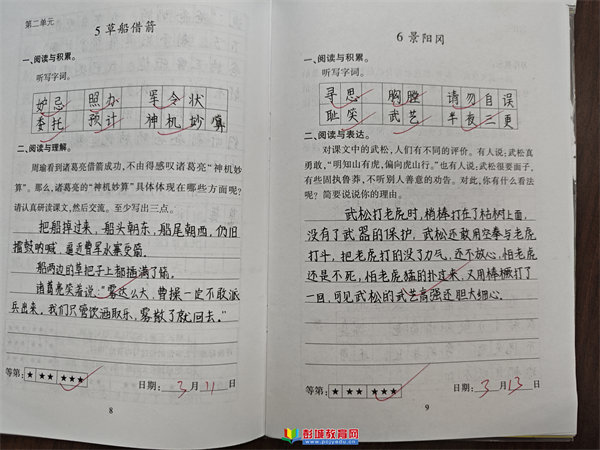 第二单元
5 草船借箭
一、阅读与积累。
听写字词。
妒忌 照办 军令状
委托 预计 神机妙算
二、阅读与理解。
周瑜看到诸葛亮借箭成功,不由得感叹诸葛亮“神机妙
算”。那么,诸葛亮的“神机妙算”具体体现在哪些方面呢?
请认真研读课文,然后交流。至少写出三点。
把船掉过来,船头朝东,船尾朝西,仍旧
擂鼓呐喊,逼近曹军水寨受箭。
船两边的草把子上都插满了箭。
诸葛亮笑着说:“雾这么大,曹操一定不敢派
兵出来,我们只管饮酒取乐,雾散了就回去。”
等第: ★ ★★ ★★★
日期: 3 月 11 日
8
6 景阳冈
一、阅读与积累。
听写字词。
寻思 胸膛 请勿自误
耻笑 武艺 半夜三更
二、阅读与表达。
对课文中的武松,人们有不同的评价。有人说:武松真
勇敢,“明知山有虎,偏向虎山行。”也有人说:武松很要面子,
有些固执鲁莽,不听别人善意的劝告。对此,你有什么看法
呢?简要说说你的理由。
武松打老虎时,梢棒打在了枯树上面,
没有了武器的保护,武松还敢用空拳与老虎
打斗,把老虎打的没了力气,还不放心,怕老虎
还是不死,怕老虎猛的扑过来,又用棒橛打了
一回,可见武松的武艺高强还胆大细心.
等第: ★ ★★ ★★★
日期: 3 月 13 日
9
彭城教育网
www.pcjyedu.cn